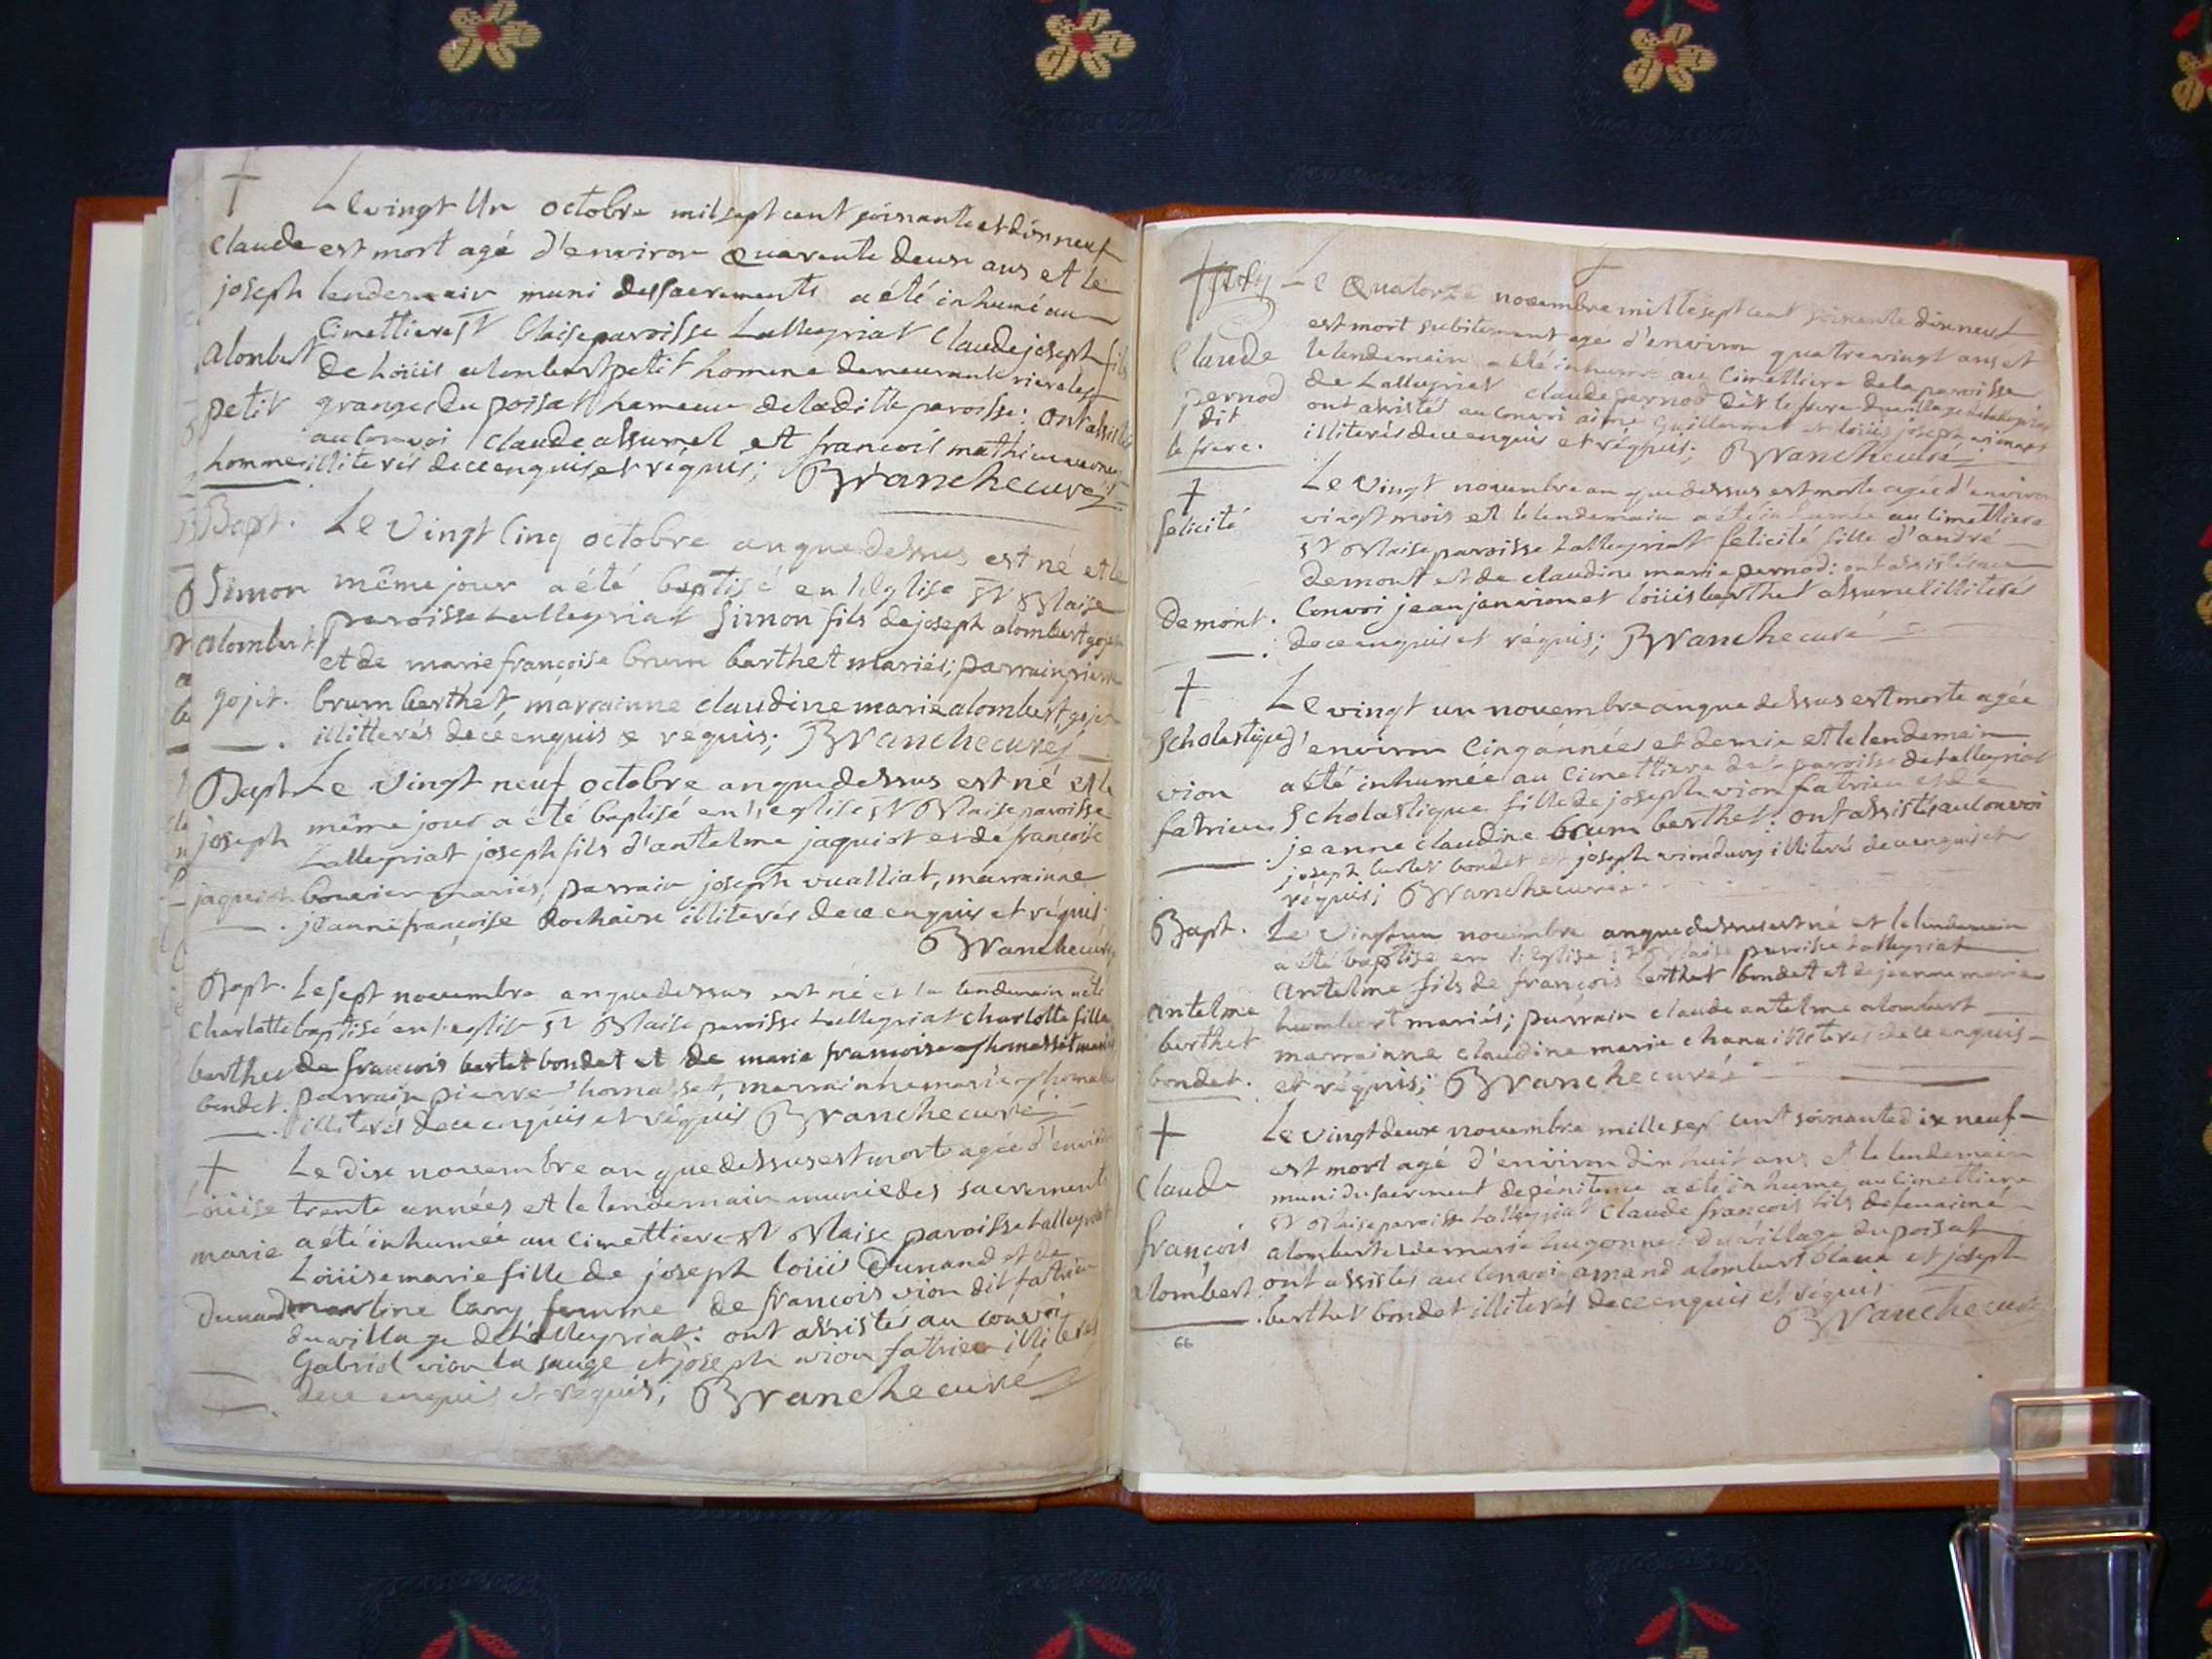 †
Le vingt Un octobre mil sept cent soixante et dix neuf
Claude est mort agé d'environ quarente deux ans et le
joseph lendemain muni des sacrements a été inhumé au
Cimettiere St Blaise paroisse Lalleyriat Claude joseph fils
alombert de Loüis alombert petit homme demeurant
petit granges du poisat hameau de la ditte paroisse: ont assistés
au Convoi Claude assumel et francois mathieu
homme illiterés de ce enquis et réquis; Branche curé
Bapt. Le Vingt Cinq octobre an que dessus est né et le
Simon même jour a été baptisé en l'Eglise St Blaise
paroisse Lalleyriat Simon fils de joseph alombert gojet
alombert et de marie françoise brum berthet mariés; parrain pierre
gojet. brum berthet, marrainne claudine marie alombert gojet
illitterés de ce enquis & réquis; Branche curé
Bapt. Le Vingt neuf octobre an que dessus est né et le
joseph même jour a été baptisé en l'eglise St Blaise paroisse
Lalleyriat joseph fils d'antelme jaquiot et de francoise
jaquiot mariés; parrain joseph vualliat, marrainne
jeanne françoise Rochaix illiterés de ce enquis et réquis
Branche curé
Bapt. Le sept novembre an que dessus est né et le lendemain a été
Charlotte baptisé en l'eglise St Blaise paroisse Lalleyriat Charlotte fille
berthet de francois bertet bondet et de marie francoise thomasset mariés
bondet. parrain pierre thomasset, marrainne marie
illiterés de ce enquis et réquis Branche curé
†
Le dix novembre an que dessus est morte agée d'environ
Loüise trente années et le lendemain munie des sacrements
marie a été inhumée au Cimettiere St Blaise paroisse Lalleyriat
Loüise marie fille de joseph loüis Dunand et de
Dunand martine lary femme de françois vion dit fatrieu
du village de Lalleyriat: ont assistés au convoi
Gabriel vion la sauge et joseph vion fatrieu illiterés
de ce enquis et réquis; Branche curé
†
Le Quatorze novembre mille sept cent soixante dix neuf
est mort subitement agé d'environ quatre vingt ans et
Claude le lendemain a été inhumé au Cimettiere de la paroisse
pernod de Lalleyriat claude pernod dit le frere du village de Lalleyriat
dit ont assistés au Convoi aimé Guillermet et loüis joseph
le frere. illiterés de ce enquis et réquis; Branche curé
†
Le Vingt novembre an que dessus est morte agée d'environ
felicité vingt mois et le lendemain a été inhumée au Cimettiere
St Blaise paroisse Lalleyriat felicité fille d'andré
demont et de claudine marie pernod: ont assistés au
Demont. Convoi jean janvion et loüis berthet assumel illiterés
de ce enquis et réquis; Branche curé
†
Le vingt un novembre an que dessus est morte agée
Scholastique d'environ Cinq années et demie et le lendemain
vion a été inhumée au Cimettiere de la paroisse de Lalleyriat
fatrieu Scholastique fille de joseph vion fatrieu et de
jeanne claudine brum berthet: ont assistés au Convoi
joseph bertet bondet et joseph illiterés de ce enquis et
réquis; Branche curé
Bapt. Le Vingt un novembre an que dessus est né et le lendemain
a été baptisé en l'Eglise St Blaise paroisse Lalleyriat
antelme antelme fils de françois berthet bondet et de jeanne marie
berthet humbert mariés; parrain claude antelme alombert
marrainne claudine marie chana illiterés de ce enquis
bondet. et réquis; Branche curé
†
Le vingt deux novembre mille sept cent soixante dix neuf
est mort agé d'environ dix huit ans et le lendemain
Claude muni du sacrement de pénitence a été inhumé au Cimettiere
St Blaise paroisse Lalleyriat Claude francois fils de feu aimé
françois alombert et de marie hugonnet du village du poisat
alombert. ont assistés au Convoi amand alombert blaux et joseph
berthet bondet illiterés de ce enquis et réquis
Branche curé
66